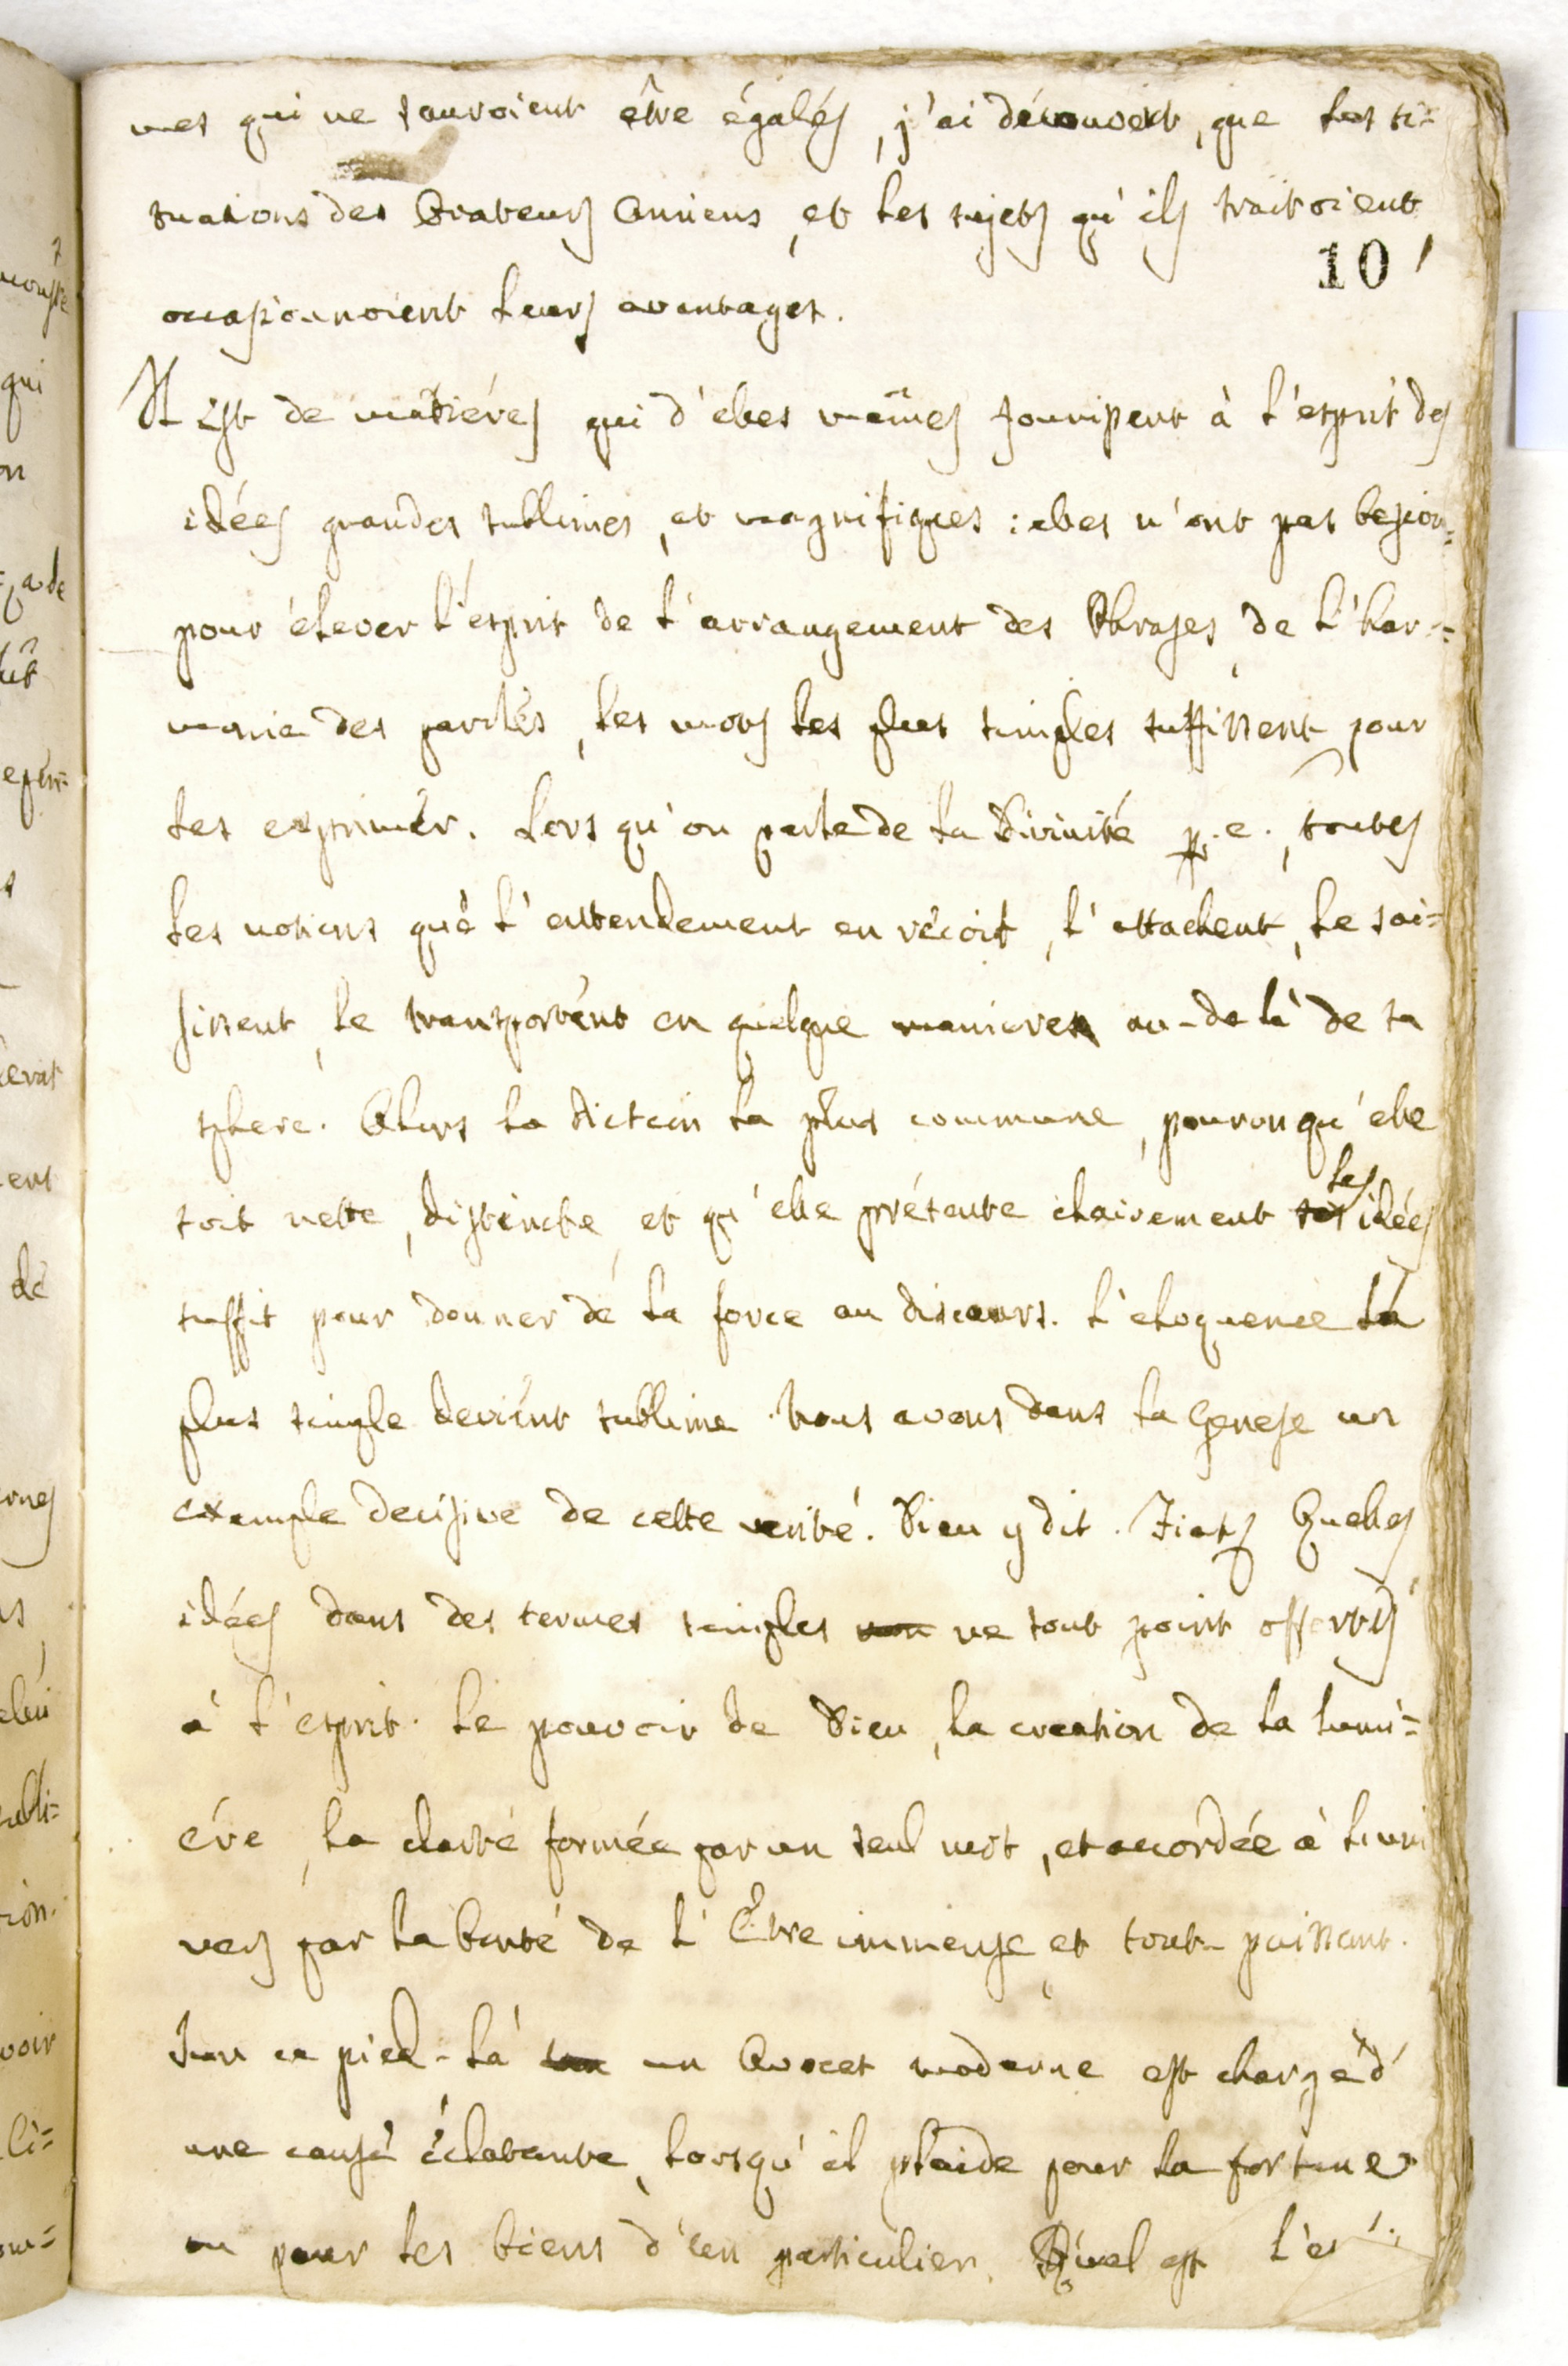 mes qui ne sauroient être égalés, j'ai découvert, que les si=
tuations des Orateurs Anciens, et les sujets qu'ils traitoient,
10
occasionnoient leurs avantages.
Il est de matiéres qui d'elles mêmes fournissent à l'esprit des
idées grandes sublimes, et magnifiques: elles n'ont pas besoin=
pour élever l'esprit de l'arrangement des Phrases, de l'har=
monie des paroles, les mots les plus simples suffissent pour
les exprimer. Lors qu'on parle de la Divinité p.e., toutes
les notions que l'entendement en récoit, l'attachent, le sai=
sissent, le transportent en quelque maniere au-de là de sa
sphere. Alors la diction la plus commune, pourvu qu'elle
soit nette, distincte, et qu'elle présente clairement les idées
suffit pour donner de la force au discours. L'eloquence la
plus simple devient sublime. Nous avons dans la Genese un
exemple decisive de cette verité. Dieu y dit. Fiat, Quelles
idées dans des termes simples ne sont point offertes
à l'esprit. Le pouvoir de Dieu, la creation de la lumi=
ére, la clarté formée par un seul mot, et accordée à l'uni
vers par la bonté de l'Être immense, et tout-puissant.
Sur ce pied-là un Avocat moderne est chargé d'
une cause éclatante, lorsqu'il plaide pour la fortune
ou pour les biens d'un particulier. Quel est